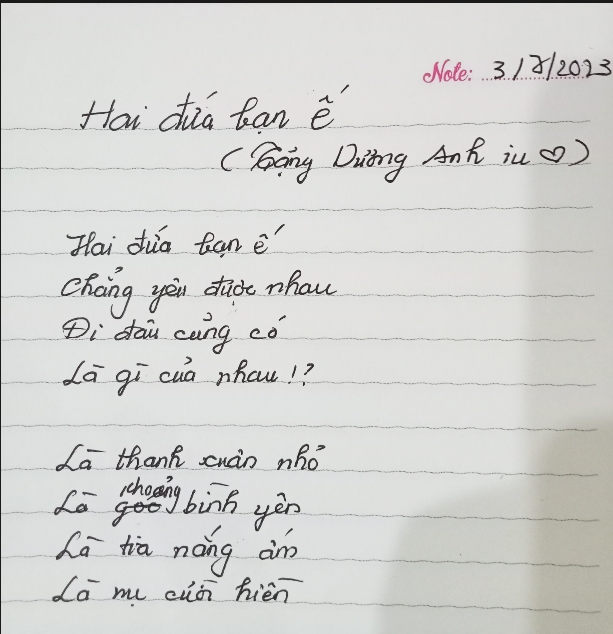 Note: 3/8/2023
Hai đứa bạn ế
(Tặng Dương Anh iu ♡)
Hai đứa bạn ế
Chẳng yêu được nhau
Đi đâu cũng có
Là gì của nhau!?
Là thanh xuân nhỏ
Là khoảng bình yên
Là tia nắng ấm
Là nụ cười hiền